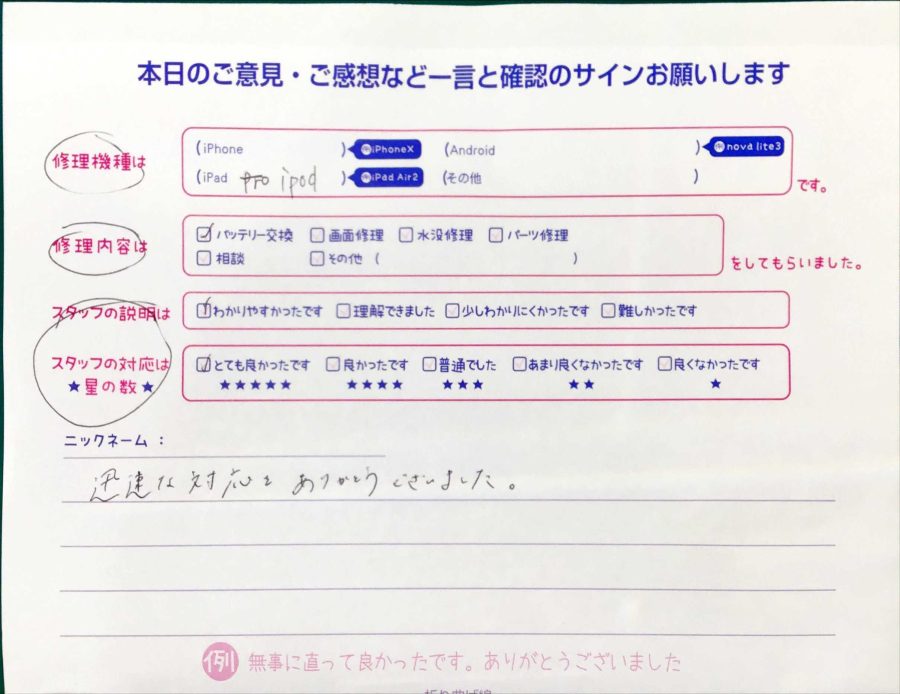 本日のご意見・ご感想など一言と確認のサインお願いします
修理機種は
(iPhone )例iPhoneX (Android )例nova lite3
(iPad ipod )例iPad Air2 (その他 )
です。
修理内容は
バッテリー交換 画面修理 水没修理 パーツ修理
相談 その他 ( )
をしてもらいました。
スタッフの説明は
わかりやすかったです 理解できました 少しわかりにくかったです 難しかったです
スタッフの対応は
★星の数★
とても良かったです 良かったです 普通でした あまり良くなかったです 良くなかったです
★★★★★ ★★★★ ★★★ ★★ ★
ニックネーム：
迅速な対応をありがとうございました。
例 無事に直って良かったです。ありがとうございました